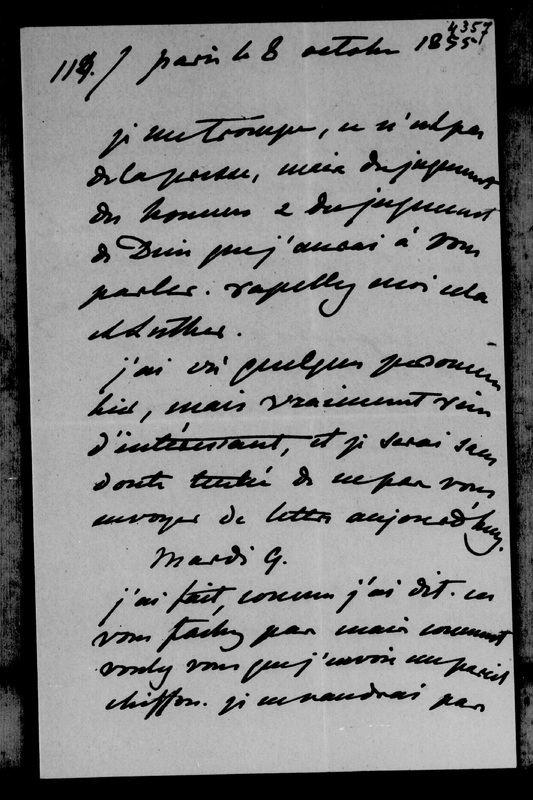 4357
119. / paris le 8 octobre 1855
je me trompe, ce n'est pas
de la presse, mais du jugement
des hommes & du jugement
de Dieu que j'aurai à vous
parler. rapelley moi cela
et Luther.
j'ai vû quelques personnes
hier, mais vraiment rien
d'intéressant, et je serai sans
doute tenté de ne pas vous
envoyer de lettre aujourd'huy.
Mardi 9.
j'ai fait, comme j'ai dit. ne
vous fachey pas mais comment
vouley vous que j'envoie un pareil
chiffon. je ne vaudrai pas